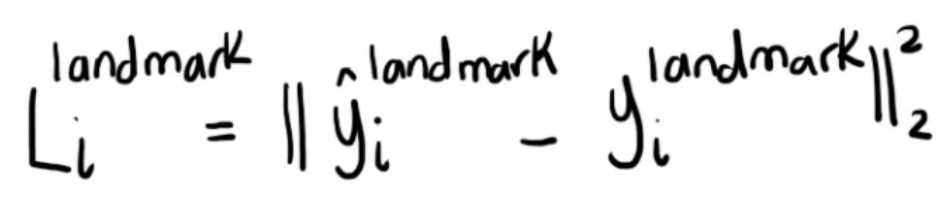 L_i^{landmark} = \| \hat{y}_i^{landmark} - y_i^{landmark} \|_2^2